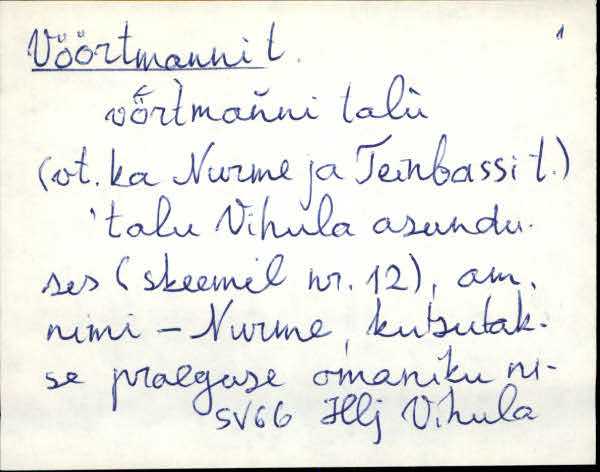 Vöörtmanni t. 1
vȫ̆rtmańni talù
(vt. ka Nurme ja Teinbassi t.)
'talu Vihula asundu-
ses (skeemil nr. 12), am.
nimi – Nurme, kutsutak-
se praeguse omaniku ni-
SV66 Hlj Vihula